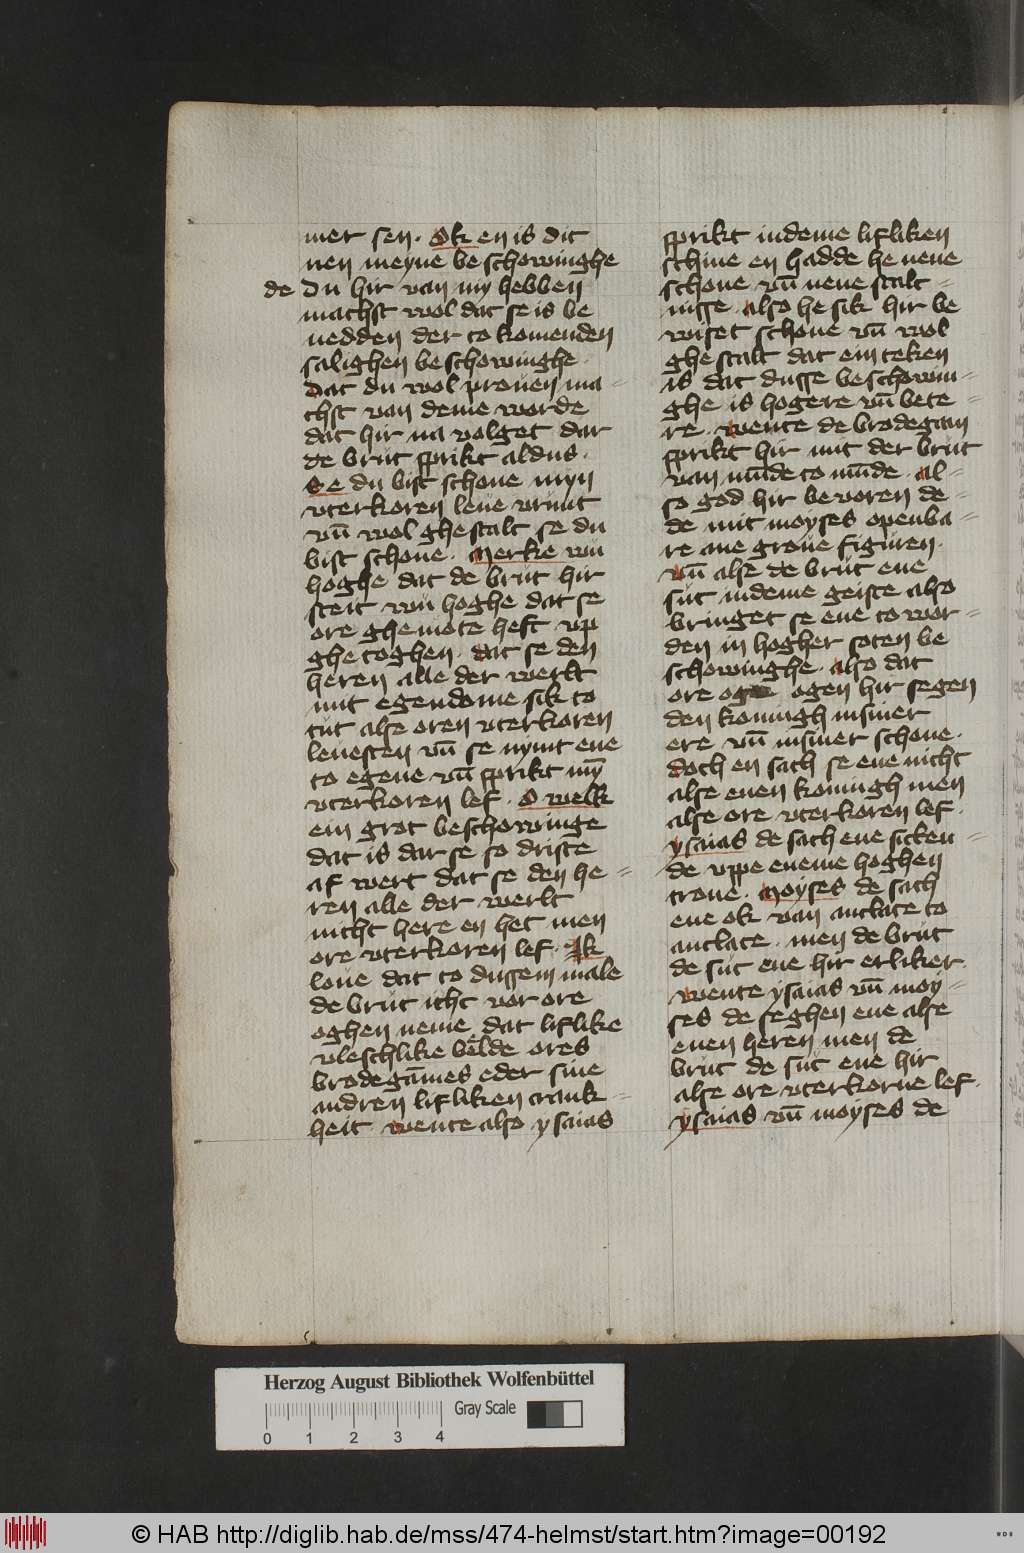 mer sen. Ok en is dit
nen meyne beschowinghe
de du hir van my hebben
machst wol dat se is be
nedden der to komenden
salighen beschowinghe.
dat du wol prouen ma=
chst van deme worde
dat hir na volget dar
de brut sprikt aldus.
Se du bist schone myn
vterkoren leue vrunt
vn̄ wol ghestalt se du
bist schone. Merke wu
hoghe dat de brut hir
steit wu hoghe dat se
ore ghemote heft vp
ghetoghen. dat se den
heren alle der werlt
mit egendome sik to
tut alse oren vterkoren
leuesten vn̄ se nymt ene
to egene vn̄ sprikt mȳ
vterkoren lef. O welk
ein grot beschowinge
dat is dar se so driste
af wert dat se den he=
ren alle der werlt
nicht here en het men
ore vterkoren lef. Ik
loue dat to dussem male
de brut icht vor ore
oghen neme dat liflike
vleschlike belde ores
brodegāmes eder sine
andren lifliken crank=
heit wente also ysaias
sprikt indeme lifliken
schine en hadde he nene
schone vn̄ nene stalt=
nisse. also he sik hir be
wiset schone vn̄ wol
ghestalt dat ein teken
is dat dusse beschowin=
ghe is hogere vn̄ bete=
re. wente de brodegam
sprikt hir mit der brut
van mūde to mūde. al=
so god hir beuoren de=
de mit moyses openba=
re ane groue figuren.
vn̄ alse de brut ene
sut indeme geiste also
bringet se ene to wor=
den in hogher soten be
schowinghe. also dat
ore ogen hir segen
den koningh insiner
ere vn̄ insiner schone.
doch en sach se ene nicht
alse enen koningh men
alse ore vterkoren lef.
ysaias de sach ene sitten=
de vppe eneme hoghen
trone. Moyses de sach
ene ok van antlate to
antlate. men de brut
de sut ene hir erliker.
wente ysaias vn̄ moy=
ses de seghen ene alse
enen heren men de
brut de sut ene hir
alse ore vterkorne lef.
ysaias vn̄ moyses de
Herzog August Bibliothek Wolfenbüttel
Gray Scale
0 1 2 3 4
© HAB http://diglib.hab.de/mss/474-helmst/start.htm?image=00192